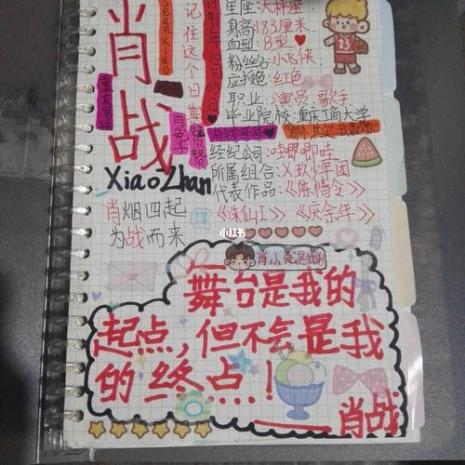 肖战
XiaoZhan
肖烟四起
为战而来
记住这个日期
星座:天秤座
身高:183厘米
血型:B型♥
粉丝名:小飞侠
应援色:红色
职业:演员、歌手
毕业院校:重庆工商大学
经纪公司:哇唧唧哇
所属组合:X玖少年团
代表作品:《陈情令》
《诛仙I》《庆余年》
小红书
舞台是我的
起点,但不会是我
的终点!
——肖战